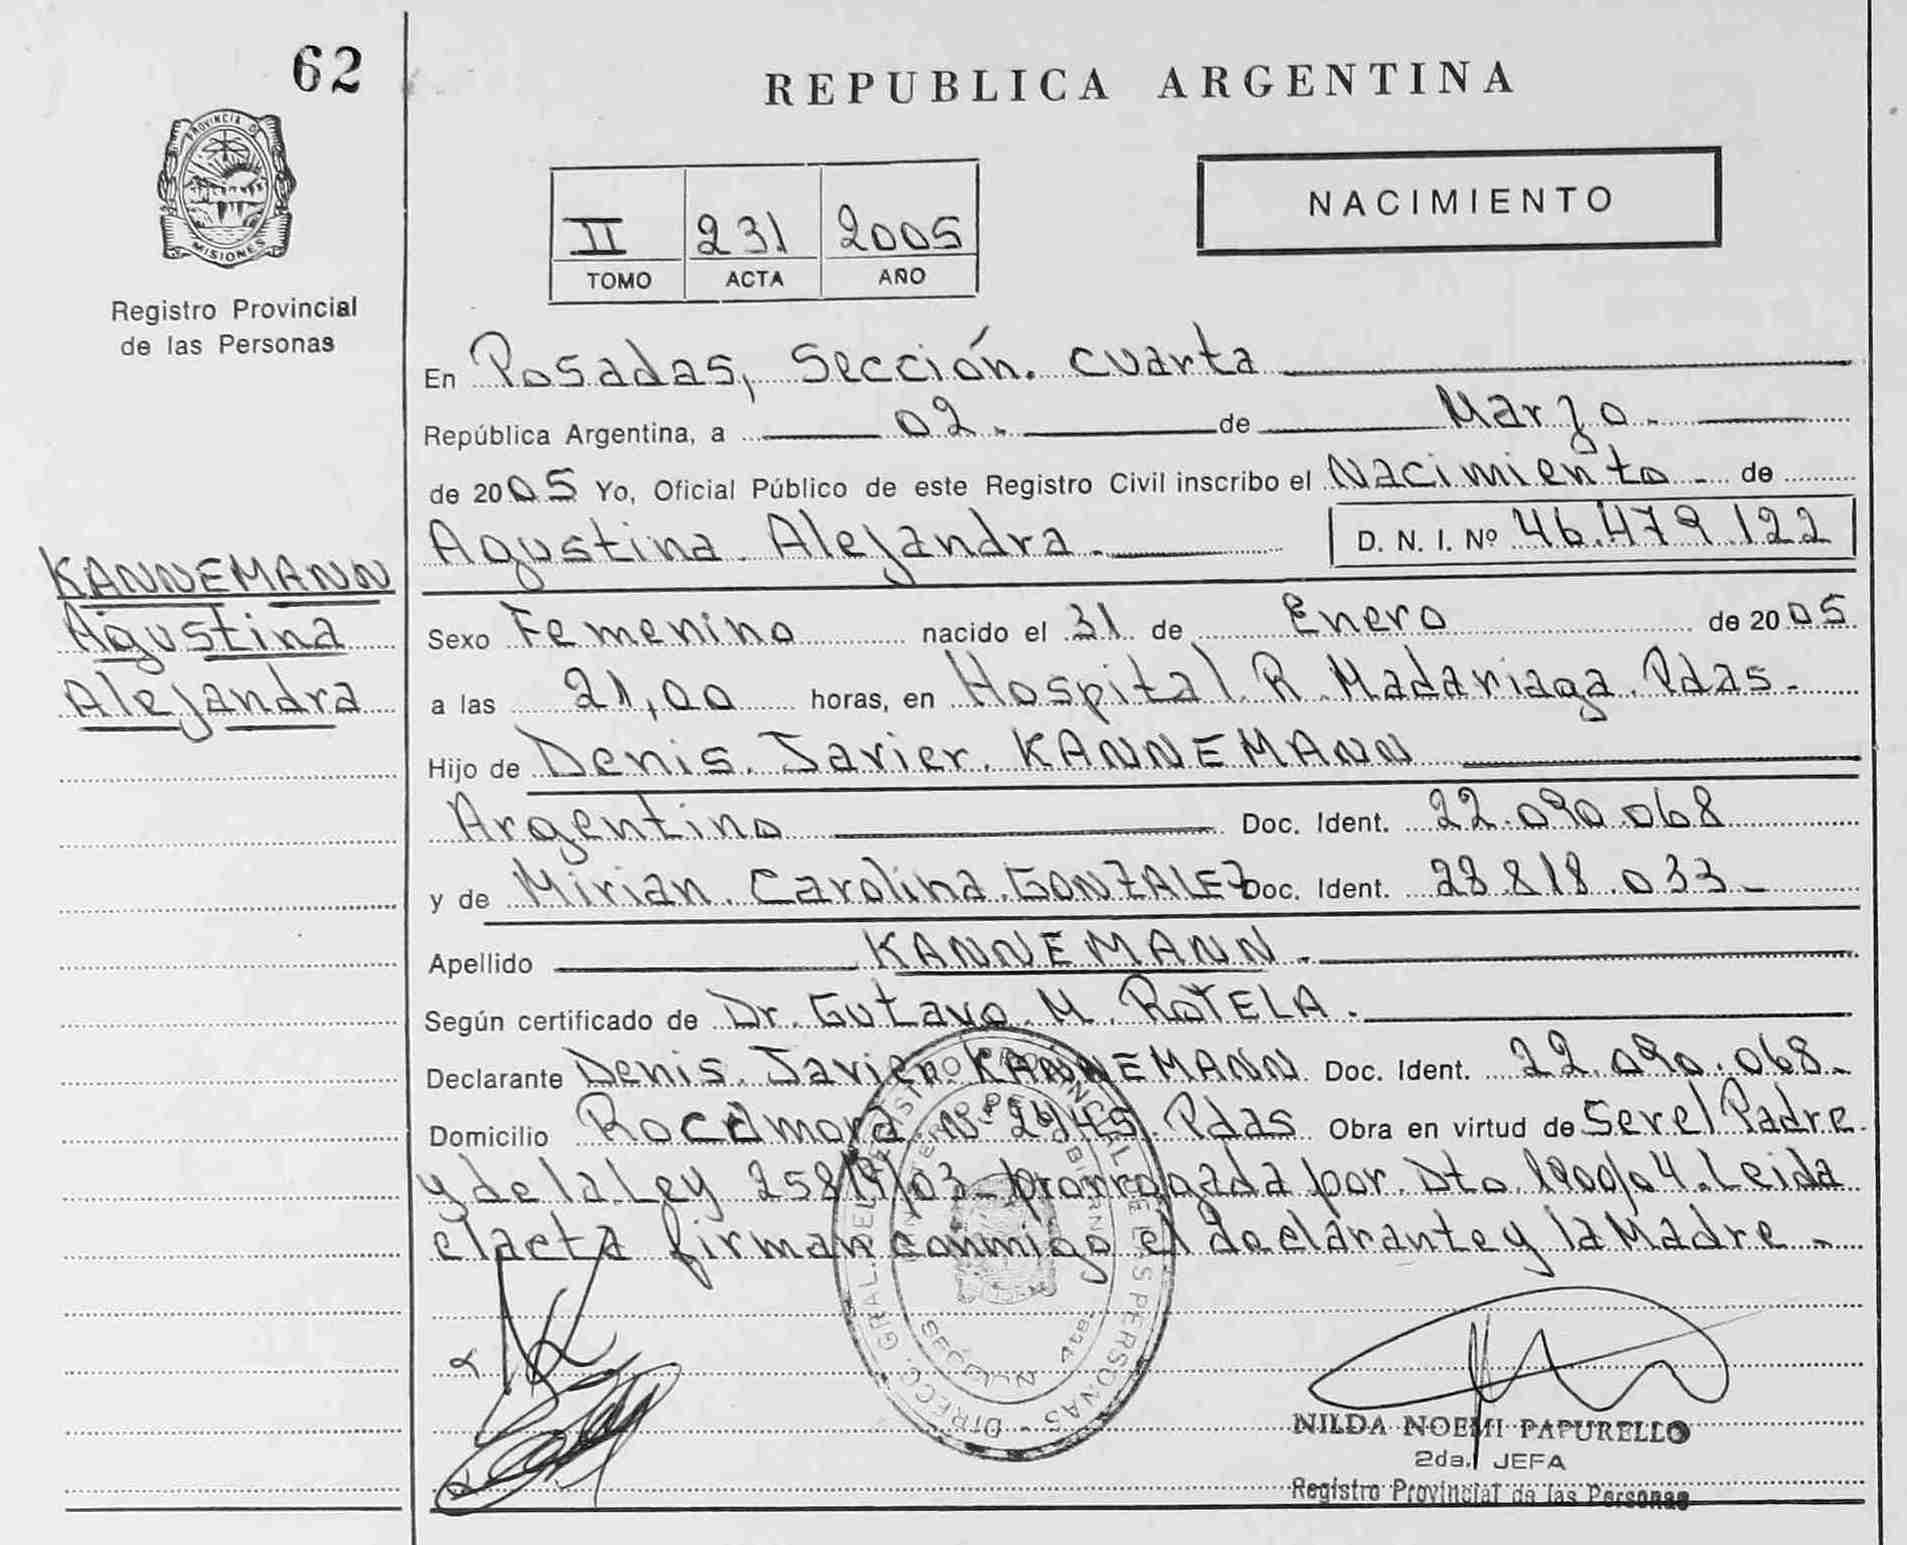 62
PROVINCIA DE
MISIONES
Registro Provincial
de las Personas
REPUBLICA ARGENTINA
II 231 2005
TOMO ACTA AÑO
NACIMIENTO
En Posadas, Sección. cuarta
República Argentina, a 02. de Marzo.
de 2005 Yo, Oficial Público de este Registro Civil inscribo el Nacimiento - de
Agustina Alejandra. D. N. I. Nº 46.479.122
KANNEMANN
Agustina
Alejandra
Sexo Femenino nacido el 31 de Enero de 2005
a las 21,00 horas, en Hospital R. Madariaga. Pdas.
Hijo de Denis. Javier. KANNEMANN
Argentino Doc. Ident. 22.090.068
y de Mirian. Carolina. GONZALEZ Doc. Ident. 28.818.033-
Apellido KANNEMANN.
Según certificado de Dr. Gutavo. M. ROTELA.
Declarante Denis. Javier. KANNEMANN Doc. Ident. 22.090.068-
Domicilio Rocamora. Nº 2445. Pdas Obra en virtud de Ser el Padre
y de la Ley 25819/03- prorrogada por. Dto. 1900/04. Leida
el acta firman conmigo el declarante y la Madre-
DIRECC. GRAL. DEL REGISTRO PROVINCIAL DE LAS PERSONAS
SECCION 4ta.
NILDA NOEMI PAPURELLO
2da. JEFA
Registro Provincial de las Personas